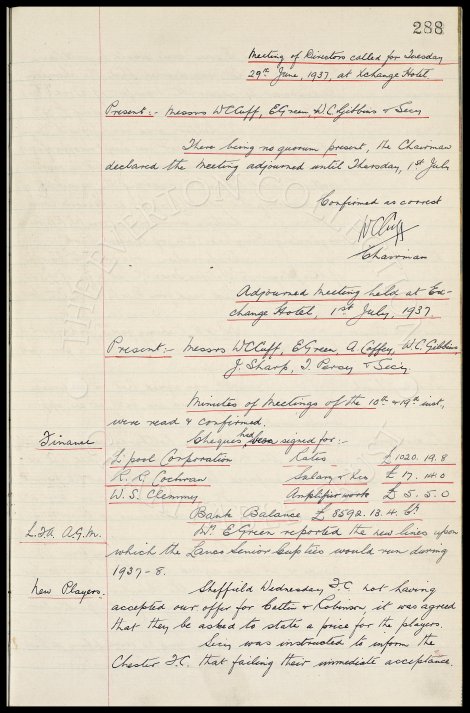 288
Meeting of Directors called for Tuesday
29th June, 1937, at Xchange Hotel
Present:- Messrs W.C.Cuff, E.Green, W.C.Gibbins & Secy
There being no quorum present, the Chairman
declared the Meeting adjourned until Thursday, 1st July
Confirmed as correct
W C Cuff
Chairman
Adjourned Meeting held at Ex-
change Hotel, 1st July, 1937.
Present:- Messrs W.C.Cuff, E.Green, A. Coffey, W.C. Gibbins,
J. Sharp, T. Percy & Secy.
Minutes of Meetings of the 10th & 19th inst,
were read & confirmed.
Finance
Cheques were signed for:-
L'pool Corporation Rates £1020. 19. 8
R. R. Cochran Salary & £17. 14. 0
W. S. Clemmey Amplifier work £5. 5. 0
Bank Balance £8592. 13. 4. Cr
L.F.A. A.G.M.
Mr. E Green reported the new lines upon
which the Lancs Senior Cup ties would run during
1937-8.
New Players.
Sheffield Wednesday F.C. not having
accepted our offer for Catlin & Robinson, it was agreed
that they be asked to state a price for the players.
Secy was instructed to inform the
Chester F.C. that failing their immediate acceptance
© THE EVERTON COLLECTION